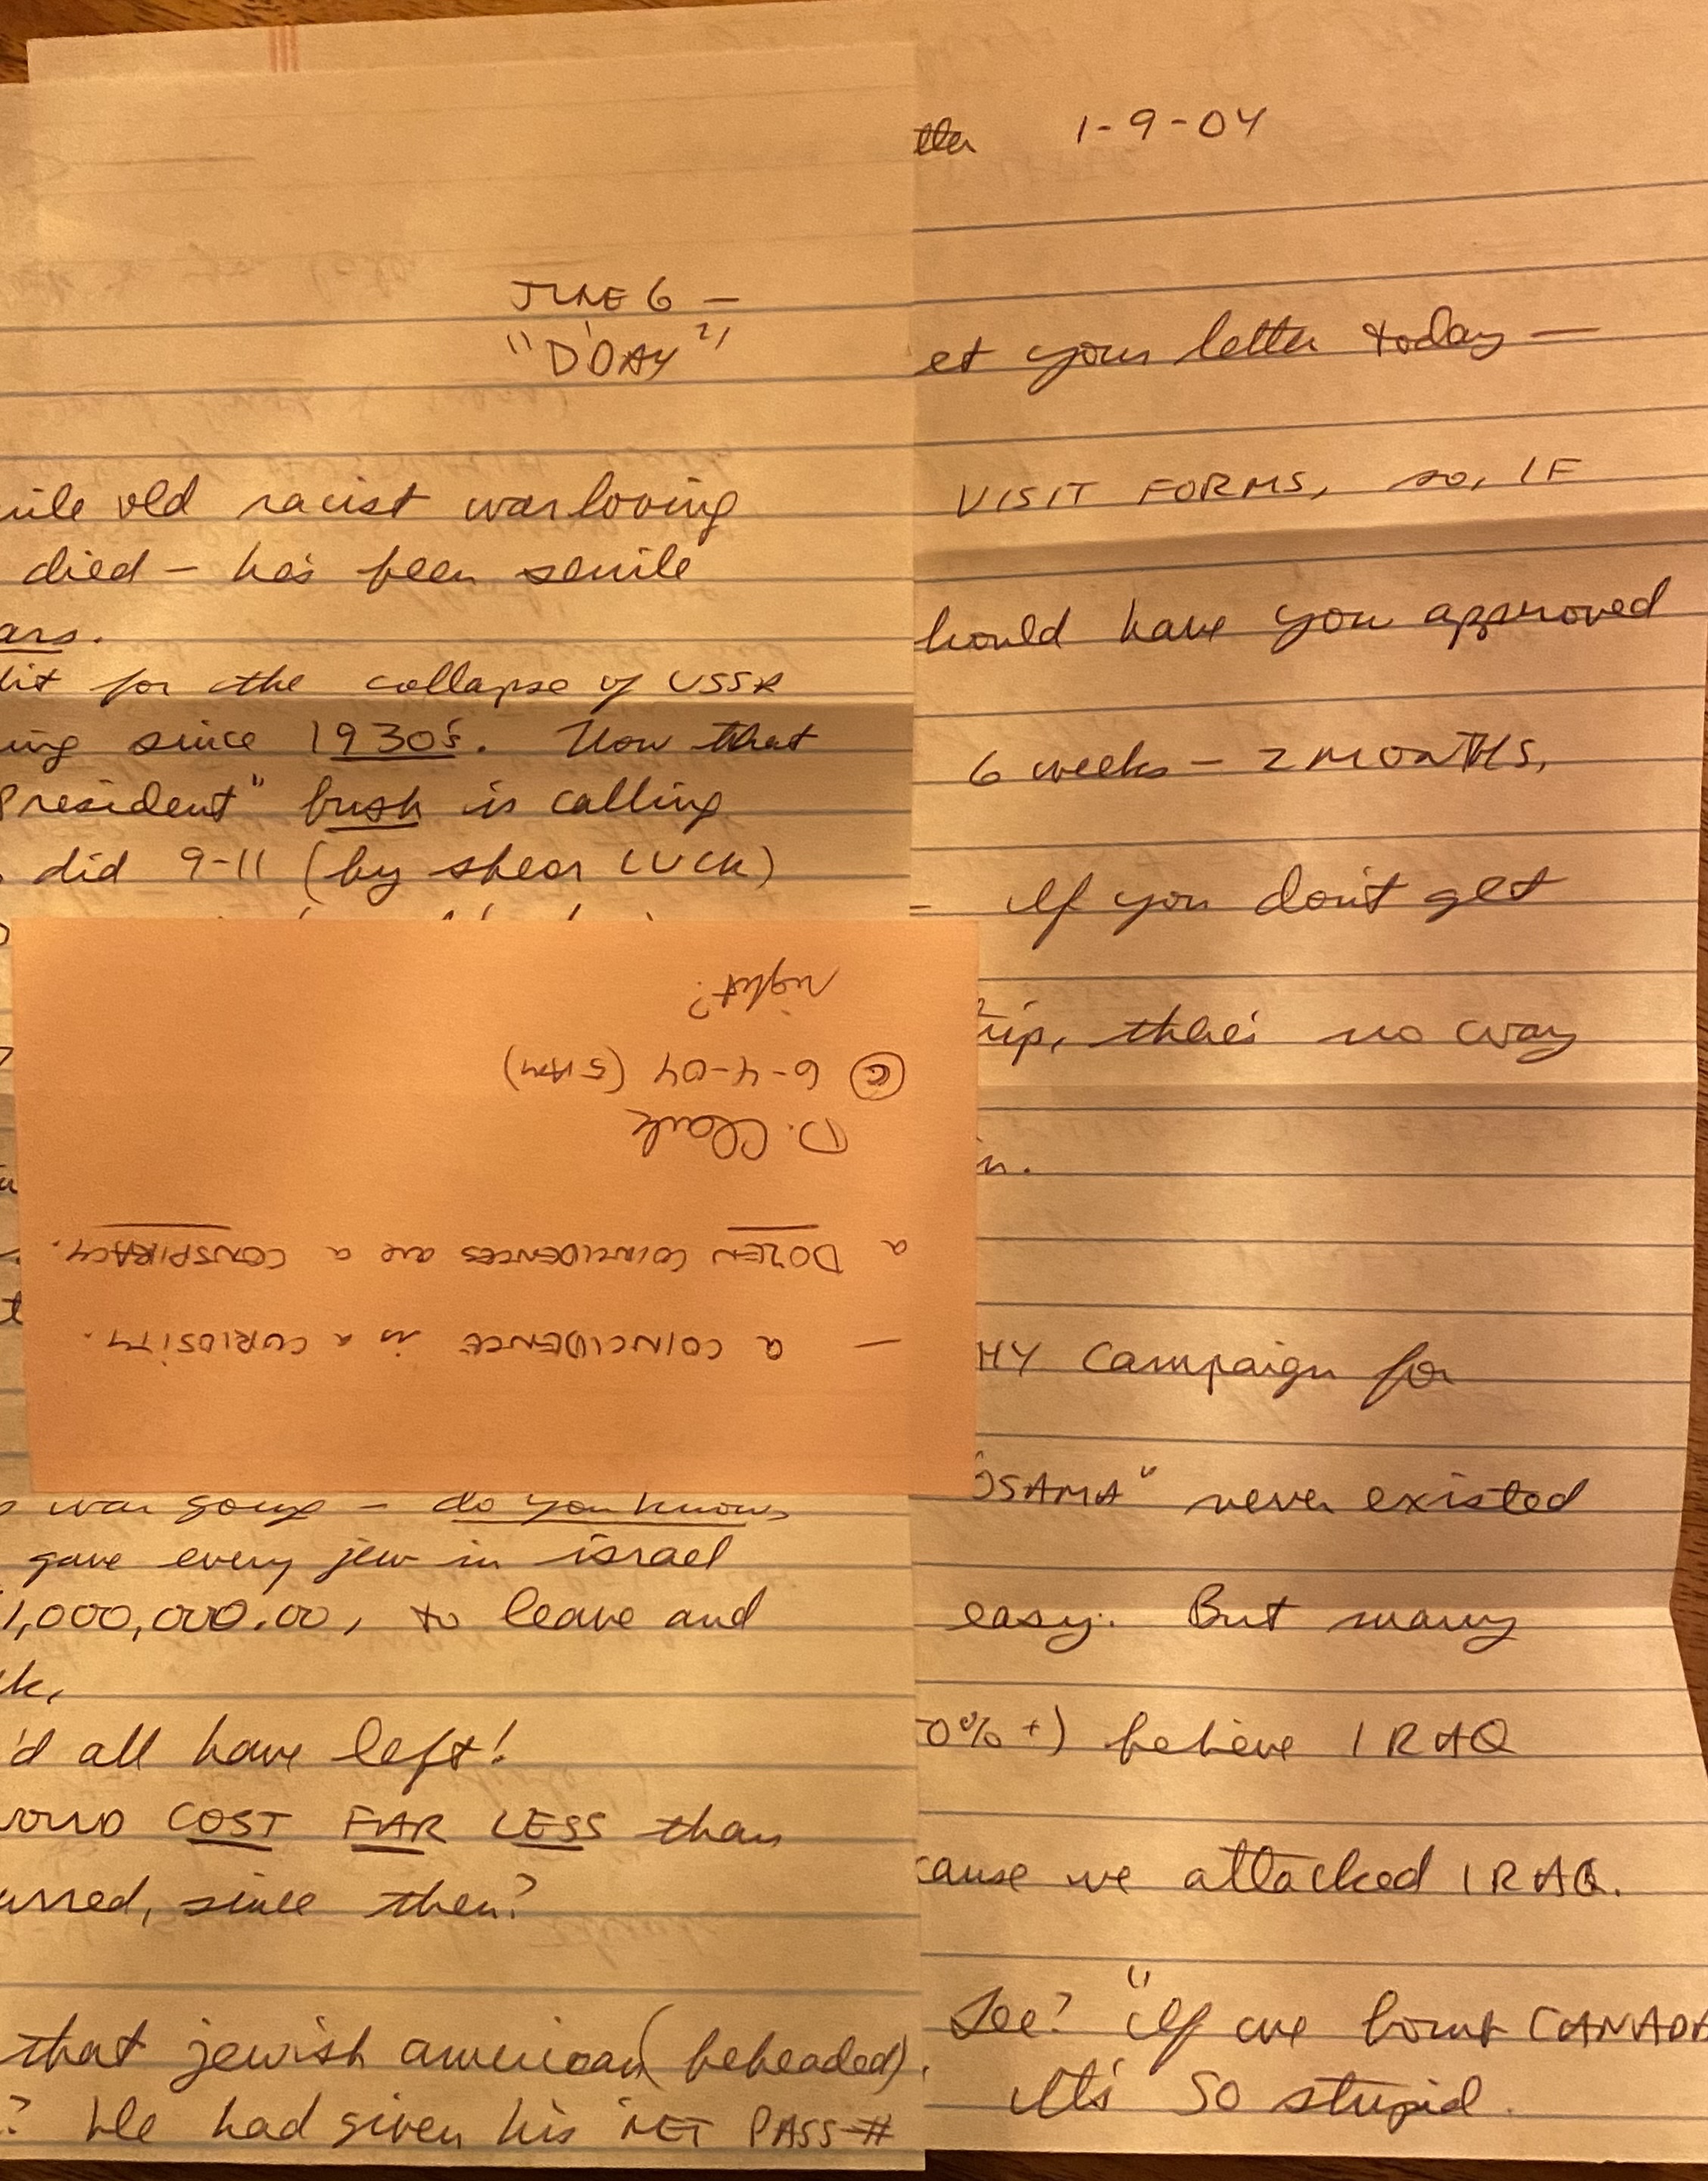 JUNE 6 —
"D'DAY"
ile old racist warloving
died — has been senile
ars.
dit for the collapse of USSR
ing since 1930's. Now that
President" bush is calling
did 9-11 (by shear LUCK)
war going — do you know,
gave every jew in israel
1,000,000.00, to leave and
k,
'd all have left!
COST FAR LESS than
urred, since then?
that jewish american (beheaded).
? He had given his NET PASS #
— a COINCIDENCE is a CURIOSITY.
a DOZEN COINCIDENCES are a CONSPIRACY.
D. Clark
© 6-4-04 (5AM)
right?
tter 1-9-04
et your letter today —
VISIT FORMS, so, IF
hould have you approved
6 weeks — 2 MONTHS,
— If you don't get
rip, there's no way
n.
HY Campaign for
OSAMA" never existed
easy. But many
0% +) believe IRAQ
cause we attacked IRAQ.
See? "If we bomb CANADA
It's SO stupid.